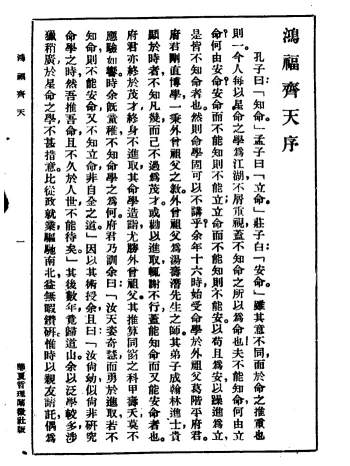 鴻福齊天序
孔子曰：「知命。」孟子曰：「立命。」莊子曰：「安命。」雖其意不同，而於命之推重也
則一。今人每以星命之學爲江湖，不屑重視，蓋不知命之所以爲命也。夫不能知命，何由立
命？何由安命？安命而不能知，則不能立；立命而不能知，則不能安。以苟且爲安，以躁進爲立，
是皆不知命者也。然則命學固可以不講乎？余年十六時，始受命學於外祖父葛階平府君。
府君剛直博學，一乘外曾祖父之教。外曾祖父爲湯壽潛先生之師，其弟子成翰林進士，貴
顯於時者，不知凡幾，而己不過爲茂才。或勸以進取，輒謝不行，蓋能知命而又能安命者也。
府君亦終於茂才，終身不進取，其命學造詣，尤勝外曾祖父。其推算同窗之科甲壽夭，莫不
應驗如響。時余旣童稚，不知命學之爲何，府君乃訓余曰：「汝天姿奇慧，而勇於進取，若不
知命，則不能安命，又不知立命，非自全之道。」因以其術授余，且曰：「汝尙幼，似尙非研究
命學之時，然吾推吾命，且不久於人世，不能待矣。」其後數年，竟歸道山。余以泛學較多，涉
獵稍廣，於星命之學，不甚措意。比從政就業，驅馳南北，益無暇鑽研。惟時以親友諮託，偶爲
鴻福齊天
一
華夏哲理闡微社版